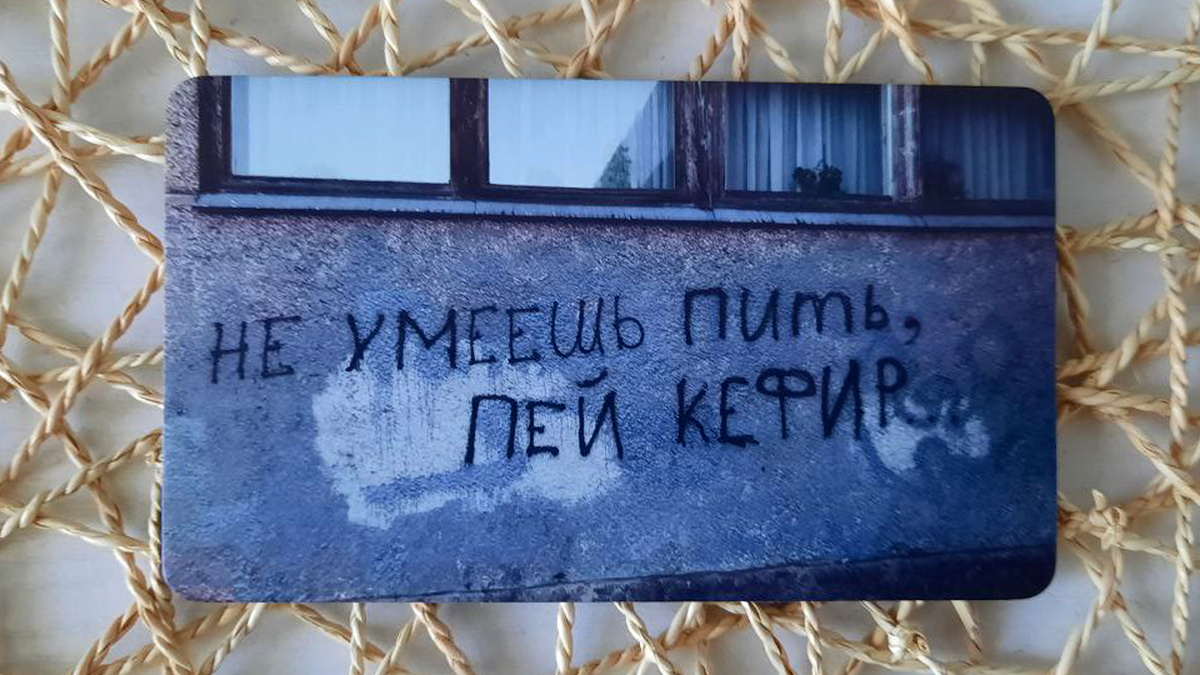 НЕ УМЕЕШЬ ПИТЬ,
ПЕЙ КЕФИР